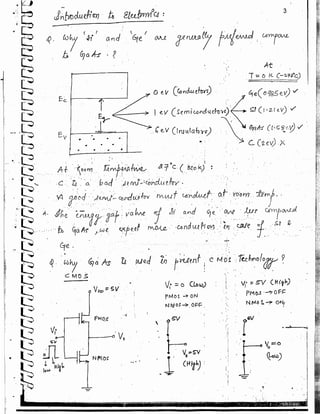 3
Introduction to Electronics :
Q. Why 'Si' and 'Ge' are generally preferred compare
to GaAs . ?
At
T = 0 K (-273°C)
Ec
Eg
Ev
0 eV (Conductors)
1 eV (Semiconductors)
6 eV (Insulators)
Ge( 0.785eV) ✓
Si (1.21eV) ✓
GaAs (1.58eV) ✓
C (2eV) X
At Room Temperature 27°C ( 300K) :
C is a bad semi-conductor.
A good semi-conductor must conduct at room temp.
A. The Energy gap value of Si and Ge are less compared
to GaAs , we expect more conductions in case of Si &
Ge .
Q. Why GaAs is used in present C MOS Technology ?
C MOS
VDD = 5V
PMOS
NMOS
Vi
Vo
5V
0
low
High
Vi = 0 (Low)
PMOS → ON
NMOS → OFF
5V
Vo = 5V
(High)
Vi = 5V (High)
PMOS → OFF
NMOS → ON
5V
Vo = 0
(Low)